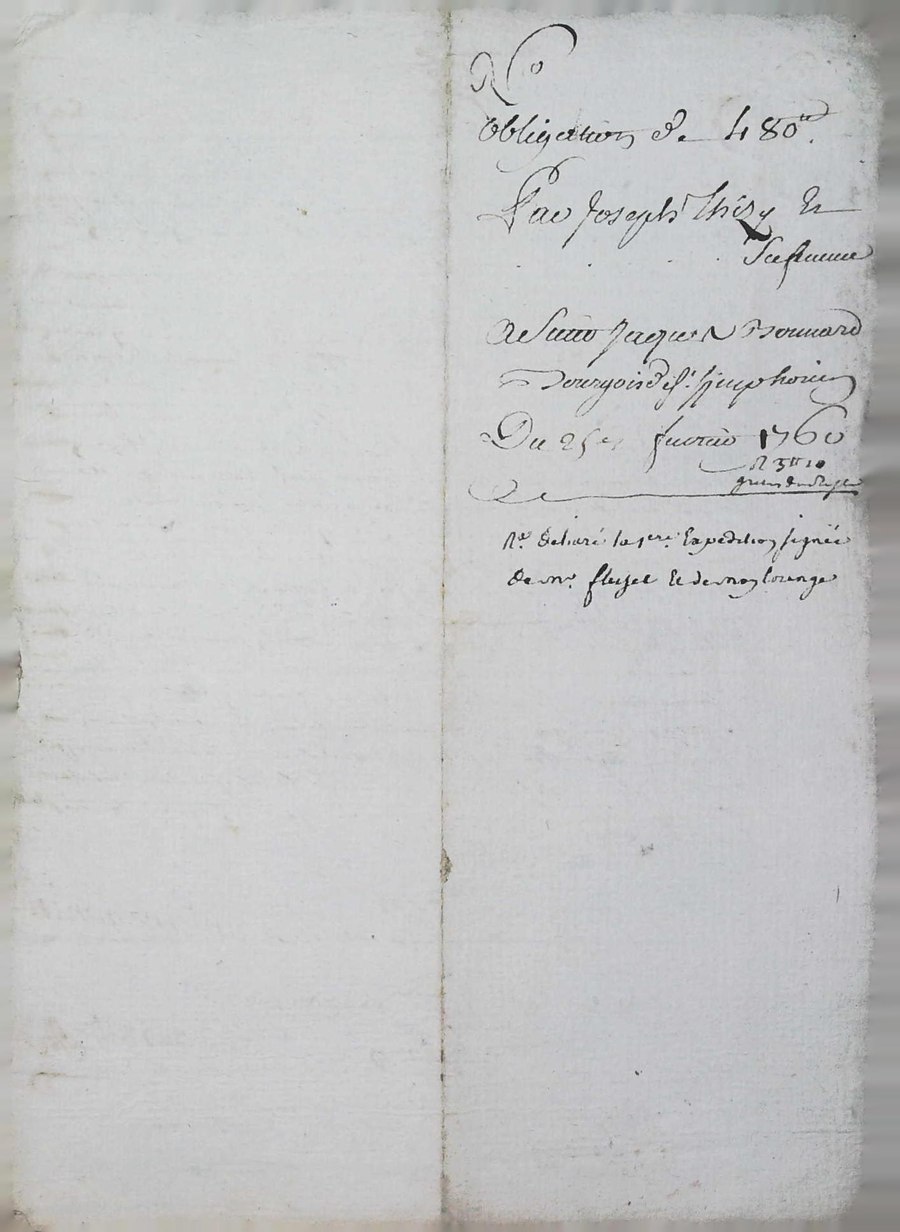 No
Obligation de 480tt.
Par Joseph Thiry Et
Sa femme
A Sieur Jacques Bonnard
Bourgois de St. Simphorien
Du 25e fevrier 1760
R 3tt 10
Rx. délivré la 1ere. Expedition signée
de Me. fleuzet Et de moy lorange